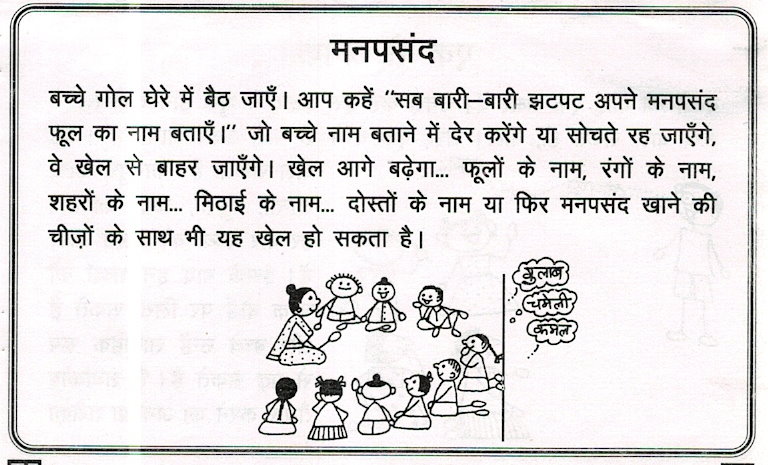 मनपसंद
बच्चे गोल घेरे में बैठ जाएँ। आप कहें "सब बारी–बारी झटपट अपने मनपसंद
फूल का नाम बताएँ।" जो बच्चे नाम बताने में देर करेंगे या सोचते रह जाएँगे,
वे खेल से बाहर जाएँगे। खेल आगे बढ़ेगा... फूलों के नाम, रंगों के नाम,
शहरों के नाम... मिठाई के नाम... दोस्तों के नाम या फिर मनपसंद खाने की
चीज़ों के साथ भी यह खेल हो सकता है।
गुलाब
चमेली
कमल